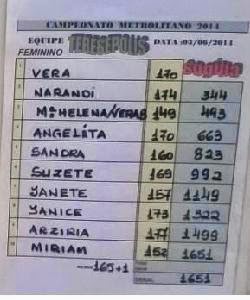 CAMPEONATO METROLITANO 2014
EQUIPE TERESEPOLIS DATA :02/06/2014
FEMININO
VERA 170
NARANDI 174 344
Mª HELENA/VERAS 149 493
ANGELITA 170 663
SANDRA 160 823
SUZETE 169 992
JANETE 157 1149
JANICE 173 1322
ARZIRIA 177 1499
MIRIAM 152 1651
165+1 1651